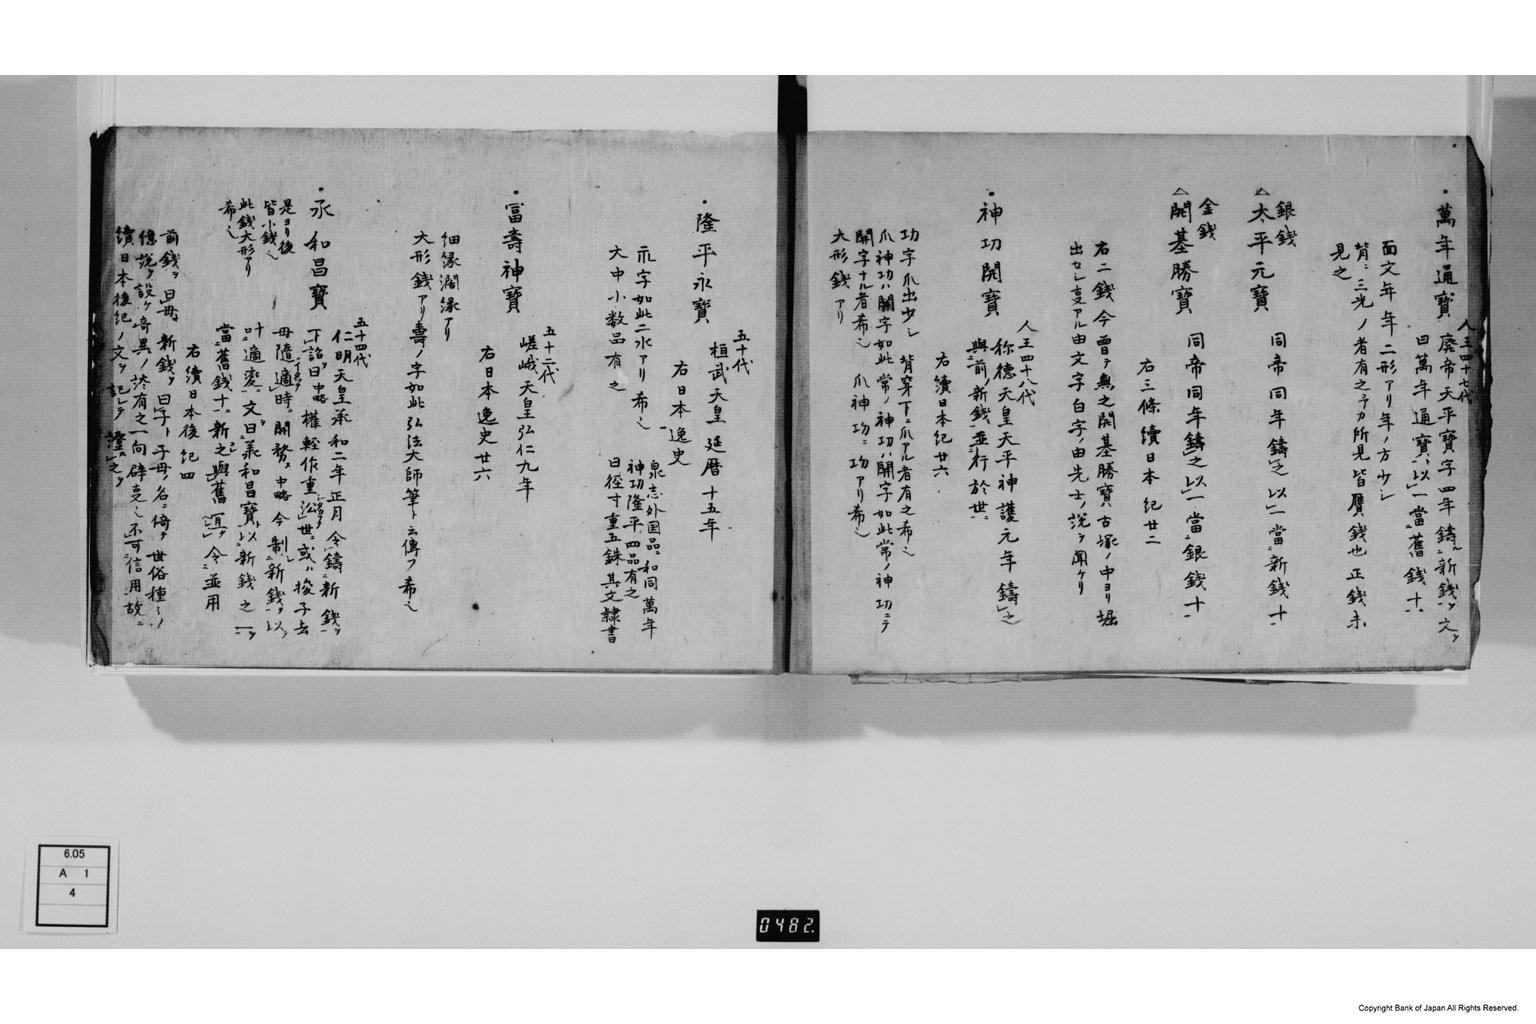 萬年通寳
人王四十七代
廃帝天平寳字四年鑄ル新銭ヲ文ヲ
曰萬年通寳ト以一當ニ舊銭十ニ
面文年年二形アリ年ノ方少シ
背ニ三光ノ者有之予カ所見皆贋銭也正銭未
見之
銀銭
△太平元寳 同帝同年鑄之以一當ニ新銭十ニ
金銭
△開基勝寳 同帝同年鑄之以一當ニ銀銭十ニ
右三條續日本紀廿二
右二銭今曽テ無之開基勝寳古塚ノ中ヨリ堀
出セシ夏アル由文字白字ノ由先士ノ説ヲ聞ケリ
神功開寳
人王四十八代
称徳天皇天平神護元年鑄之
與前ノ新銭並行於世ニ
右續日本紀廿六
功字爪出少シ 背穿下ニ爪アル者有之希也
爪神功ハ開字如此常ノ神功ハ開字如此常ノ神功ニテ
開字ナル者希也 爪神功ニ功アリ希也
大形銭アリ
隆平永寳
五十代
桓武天皇延暦十五年
右日本逸史
永字如此二水アリ希也
大中小数品有之
泉志外国品ニ和同萬年
神功隆平四品有之
曰径寸重五銖其文隷書
富壽神寳
五十二代
嵯峨天皇弘仁九年
右日本逸史廿六
細縁濶縁アリ
大形銭アリ壽ノ字如此弘法大師筆ト云傳フ希也
承和昌寳
五十四代
仁明天皇承和二年正月令鑄新銭ヲ
下詔曰中略權軽作重㳂世ニ或ハ捘子去
母隨適時ニ開務ヲ中略今制新銭ヲ以
叶ニ適変ニ文曰ニ承和昌寳ト以新銭之一ヲ
當ニ舊銭十ニ新之與舊冝ク令ニ並用
右續日本後紀四
是ヨリ後
皆小銭也
此銭大形アリ
希也
前銭ヲ曰母新銭ヲ曰子ト子母ノ名ニ倚テ世俗種々ノ
憶説ヲ設ケ奇異ノ談有之一向辟夏也不可信用故ニ
續日本後紀ノ文ヲ記シテ證之
6.05
A 1
4
0482.
Copyright Bank of Japan All Rights Reserved.